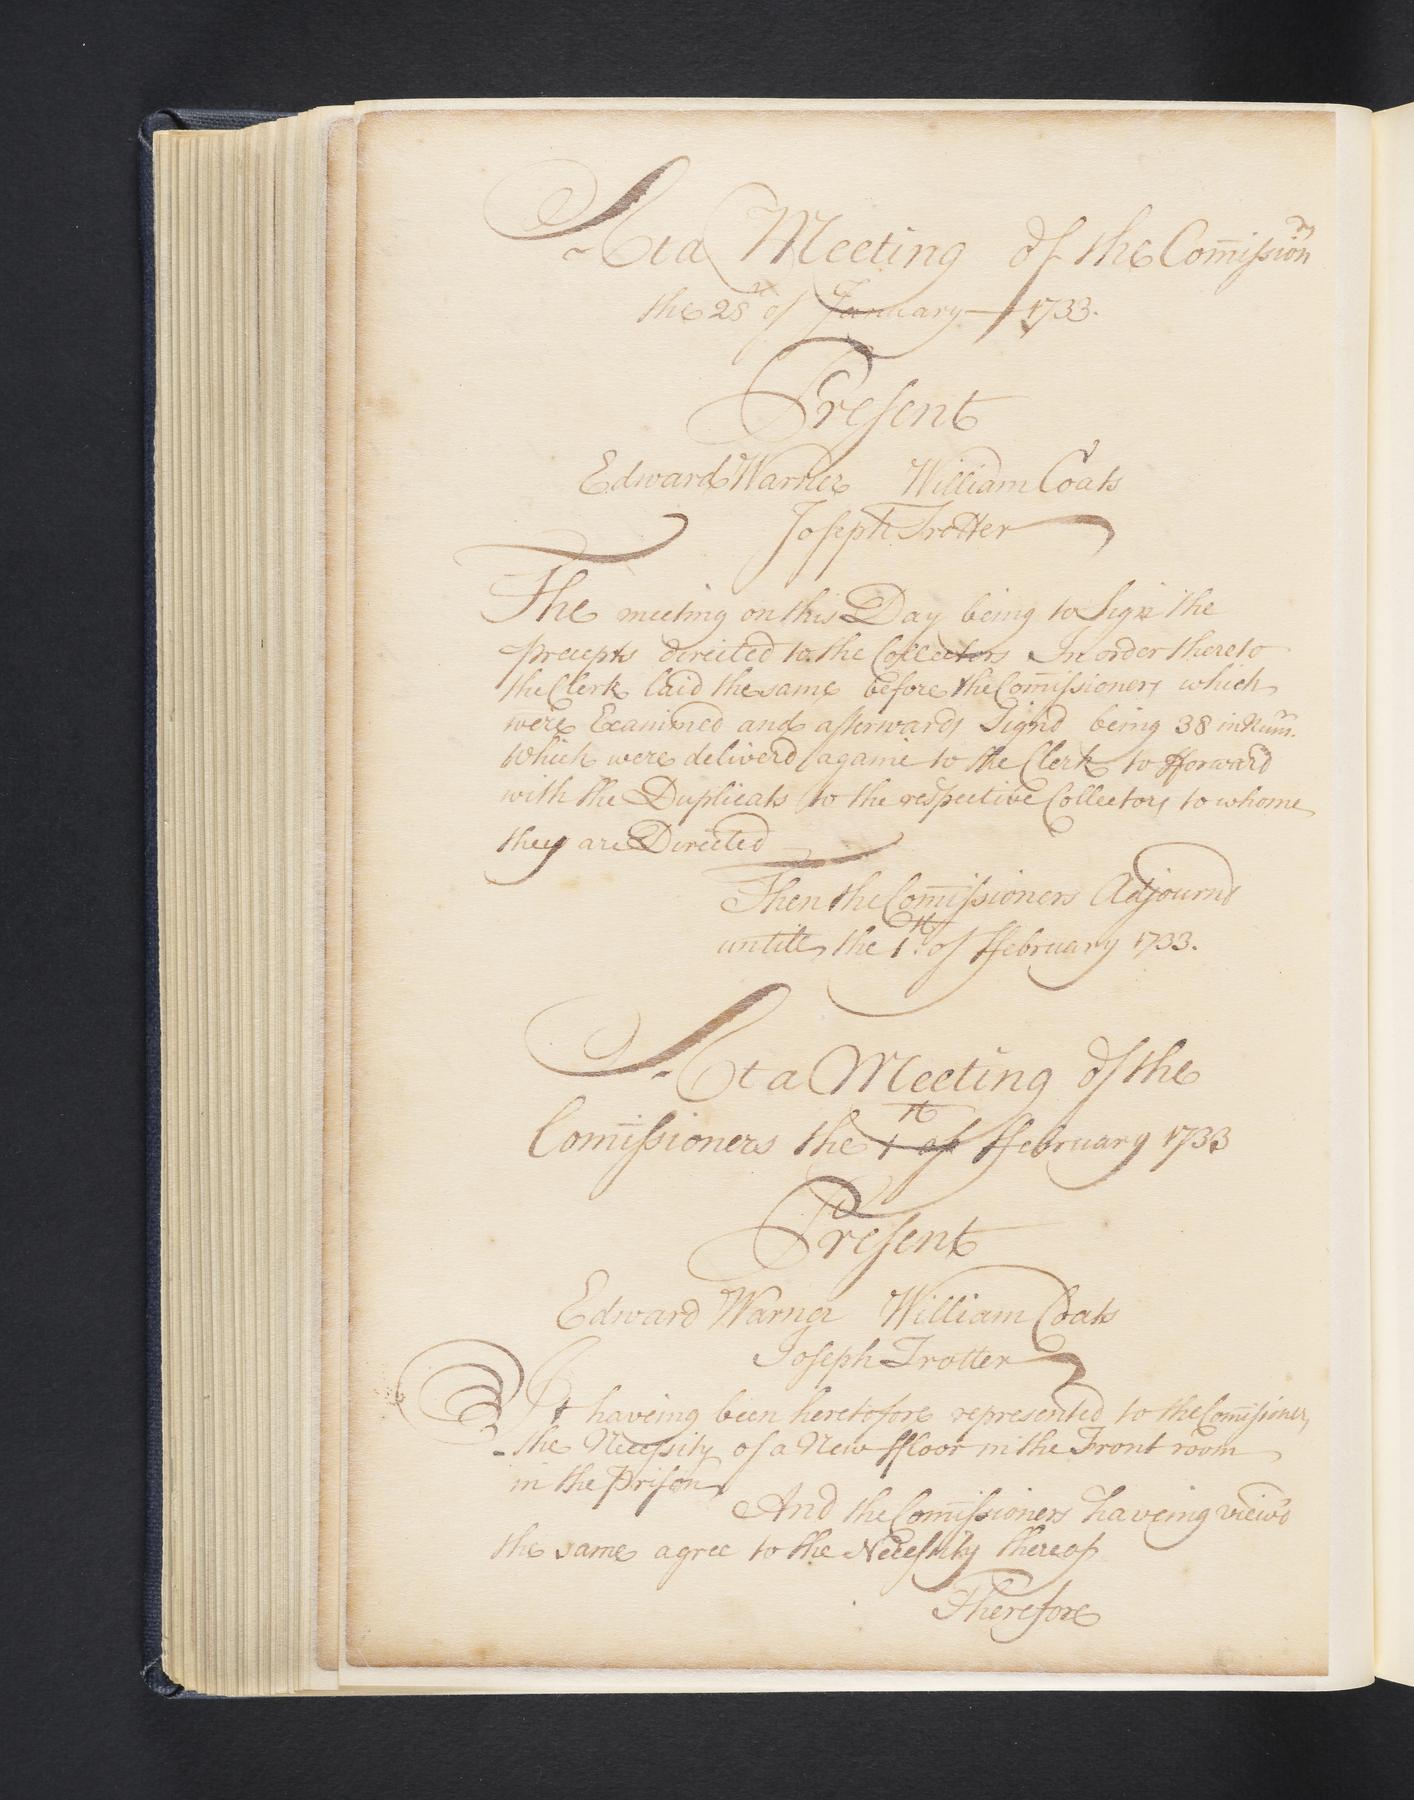 At a Meeting of the Com̄ission.rs
the 28th of January 1733.
Present
Edward Warner William Coats
Joseph Trotter
The meeting on this Day being to Sign the
precepts directed to the Collectors In order thereto
the Clerk laid the same before the Com̄issioners which
were Examined and afterwards Signd being 38 in Numr.
Which were deliverd againe to the Clerk to fforward
with the Duplicats to the respective Collectors to whome
they are Directed
Then the Com̄issioners Adjournd
untill the 1st. of ffebruary 1733.
At a Meeting of the
Com̄issioners the 1st of ffebruary 1733
Present
Edward Warner William Coats
Joseph Trotter
It haveing been heretofore represented to the Com̄issioners
the Necessity of a New ffloor in the Front room
in the Prison
And the Com̄issioners haveing view'd
the same agree to the Necessity thereof
Therefore